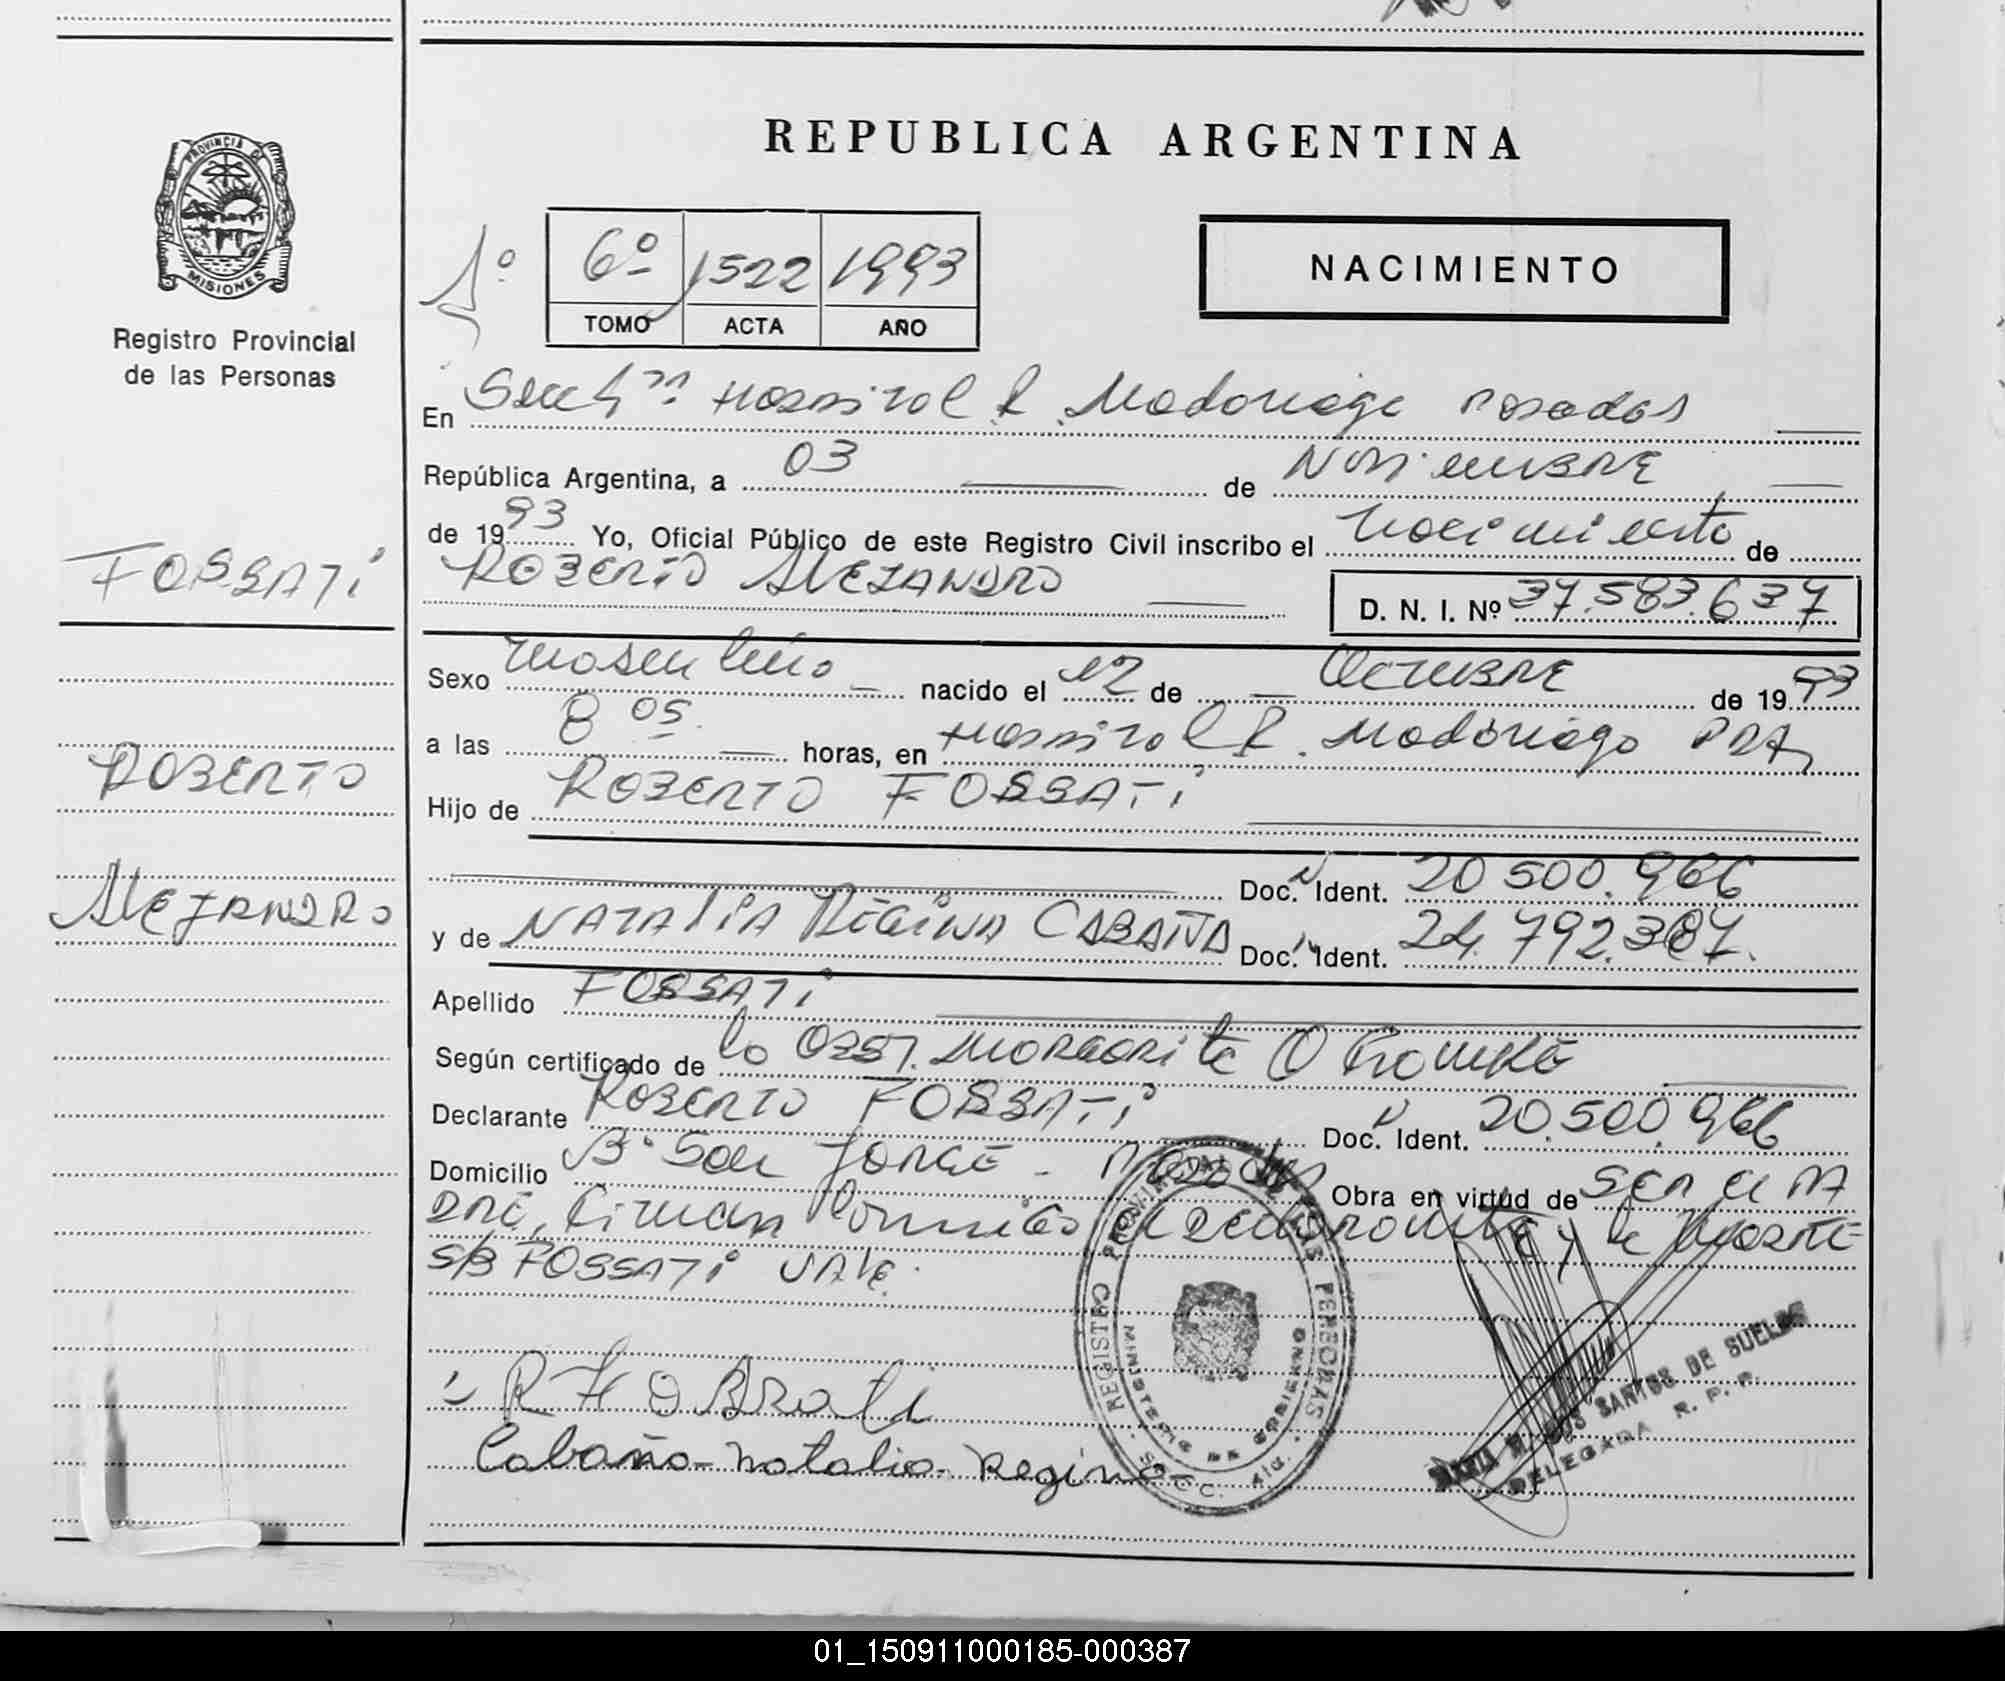 PROVINCIA DE
MISIONES
Registro Provincial
de las Personas
FOSSATI
ROBERTO
ALEJANDRO
REPUBLICA ARGENTINA
1º 6º 1522 1993
TOMO ACTA AÑO
NACIMIENTO
En Secc 1ra Hospital R. Madariaga Posadas
República Argentina, a 03 de Noviembre
de 1993 Yo, Oficial Público de este Registro Civil inscribo el nacimiento de
ROBERTO ALEJANDRO D. N. I. Nº 37.583.637
Sexo masculino nacido el 12 de OCTUBRE de 1993
a las 8 05 horas, en Hospital R. Madariaga PDAS
Hijo de ROBERTO FOSSATI
Doc. N Ident. 20 500.966
y de NATALIA REGINA CABAÑA Doc. N Ident. 24.792.387.
Apellido FOSSATI
Según certificado de la OBST. MARGARITA O
Declarante ROBERTO FOSSATI Doc. N Ident. 20.500.966
Domicilio Bº San JORGE - Posadas Obra en virtud de SER el PA
DRE, Firman el declarante y la MADRE
S/B FOSSATI VALE.
REGISTRO PROVINCIAL DE LAS PERSONAS
MINISTERIO DE GOBIERNO
Cabaña - Natalia - Regina
SANTOS DE SUELDO
DELEGADA R. P. P.
01_150911000185-000387